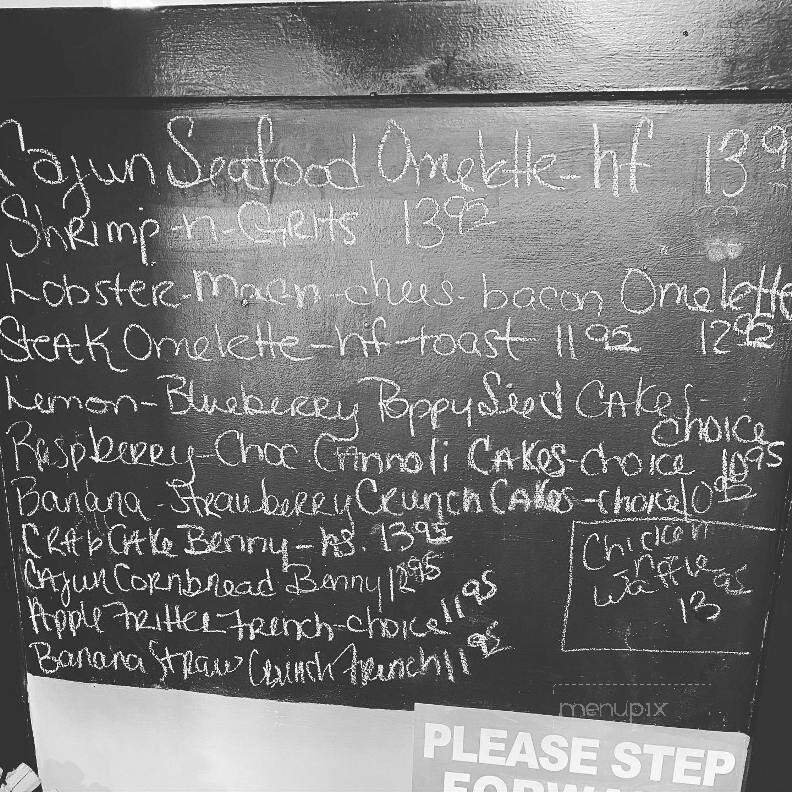 Cajun Seafood Omelette-hf 13 9
Shrimp-n-Grits 13 95
Lobster-mac n-chees-bacon Omelette
12 95
Steak Omelette-hf-toast 11 95
Lemon-Blueberry Poppy Seed Cakes-
choice
Raspberry-Choc Cannoli Cakes-choice 10 95
Banana-Strawberry Crunch Cakes-choice 10 95
Crab Cake Benny-hf. 13 95
Cajun Cornbread Benny 12 95
Apple Fritter French-choice 11 95
Banana Straw Crunch French 11 95
Chicken
n
Waffle
13 95
menupix
PLEASE STEP